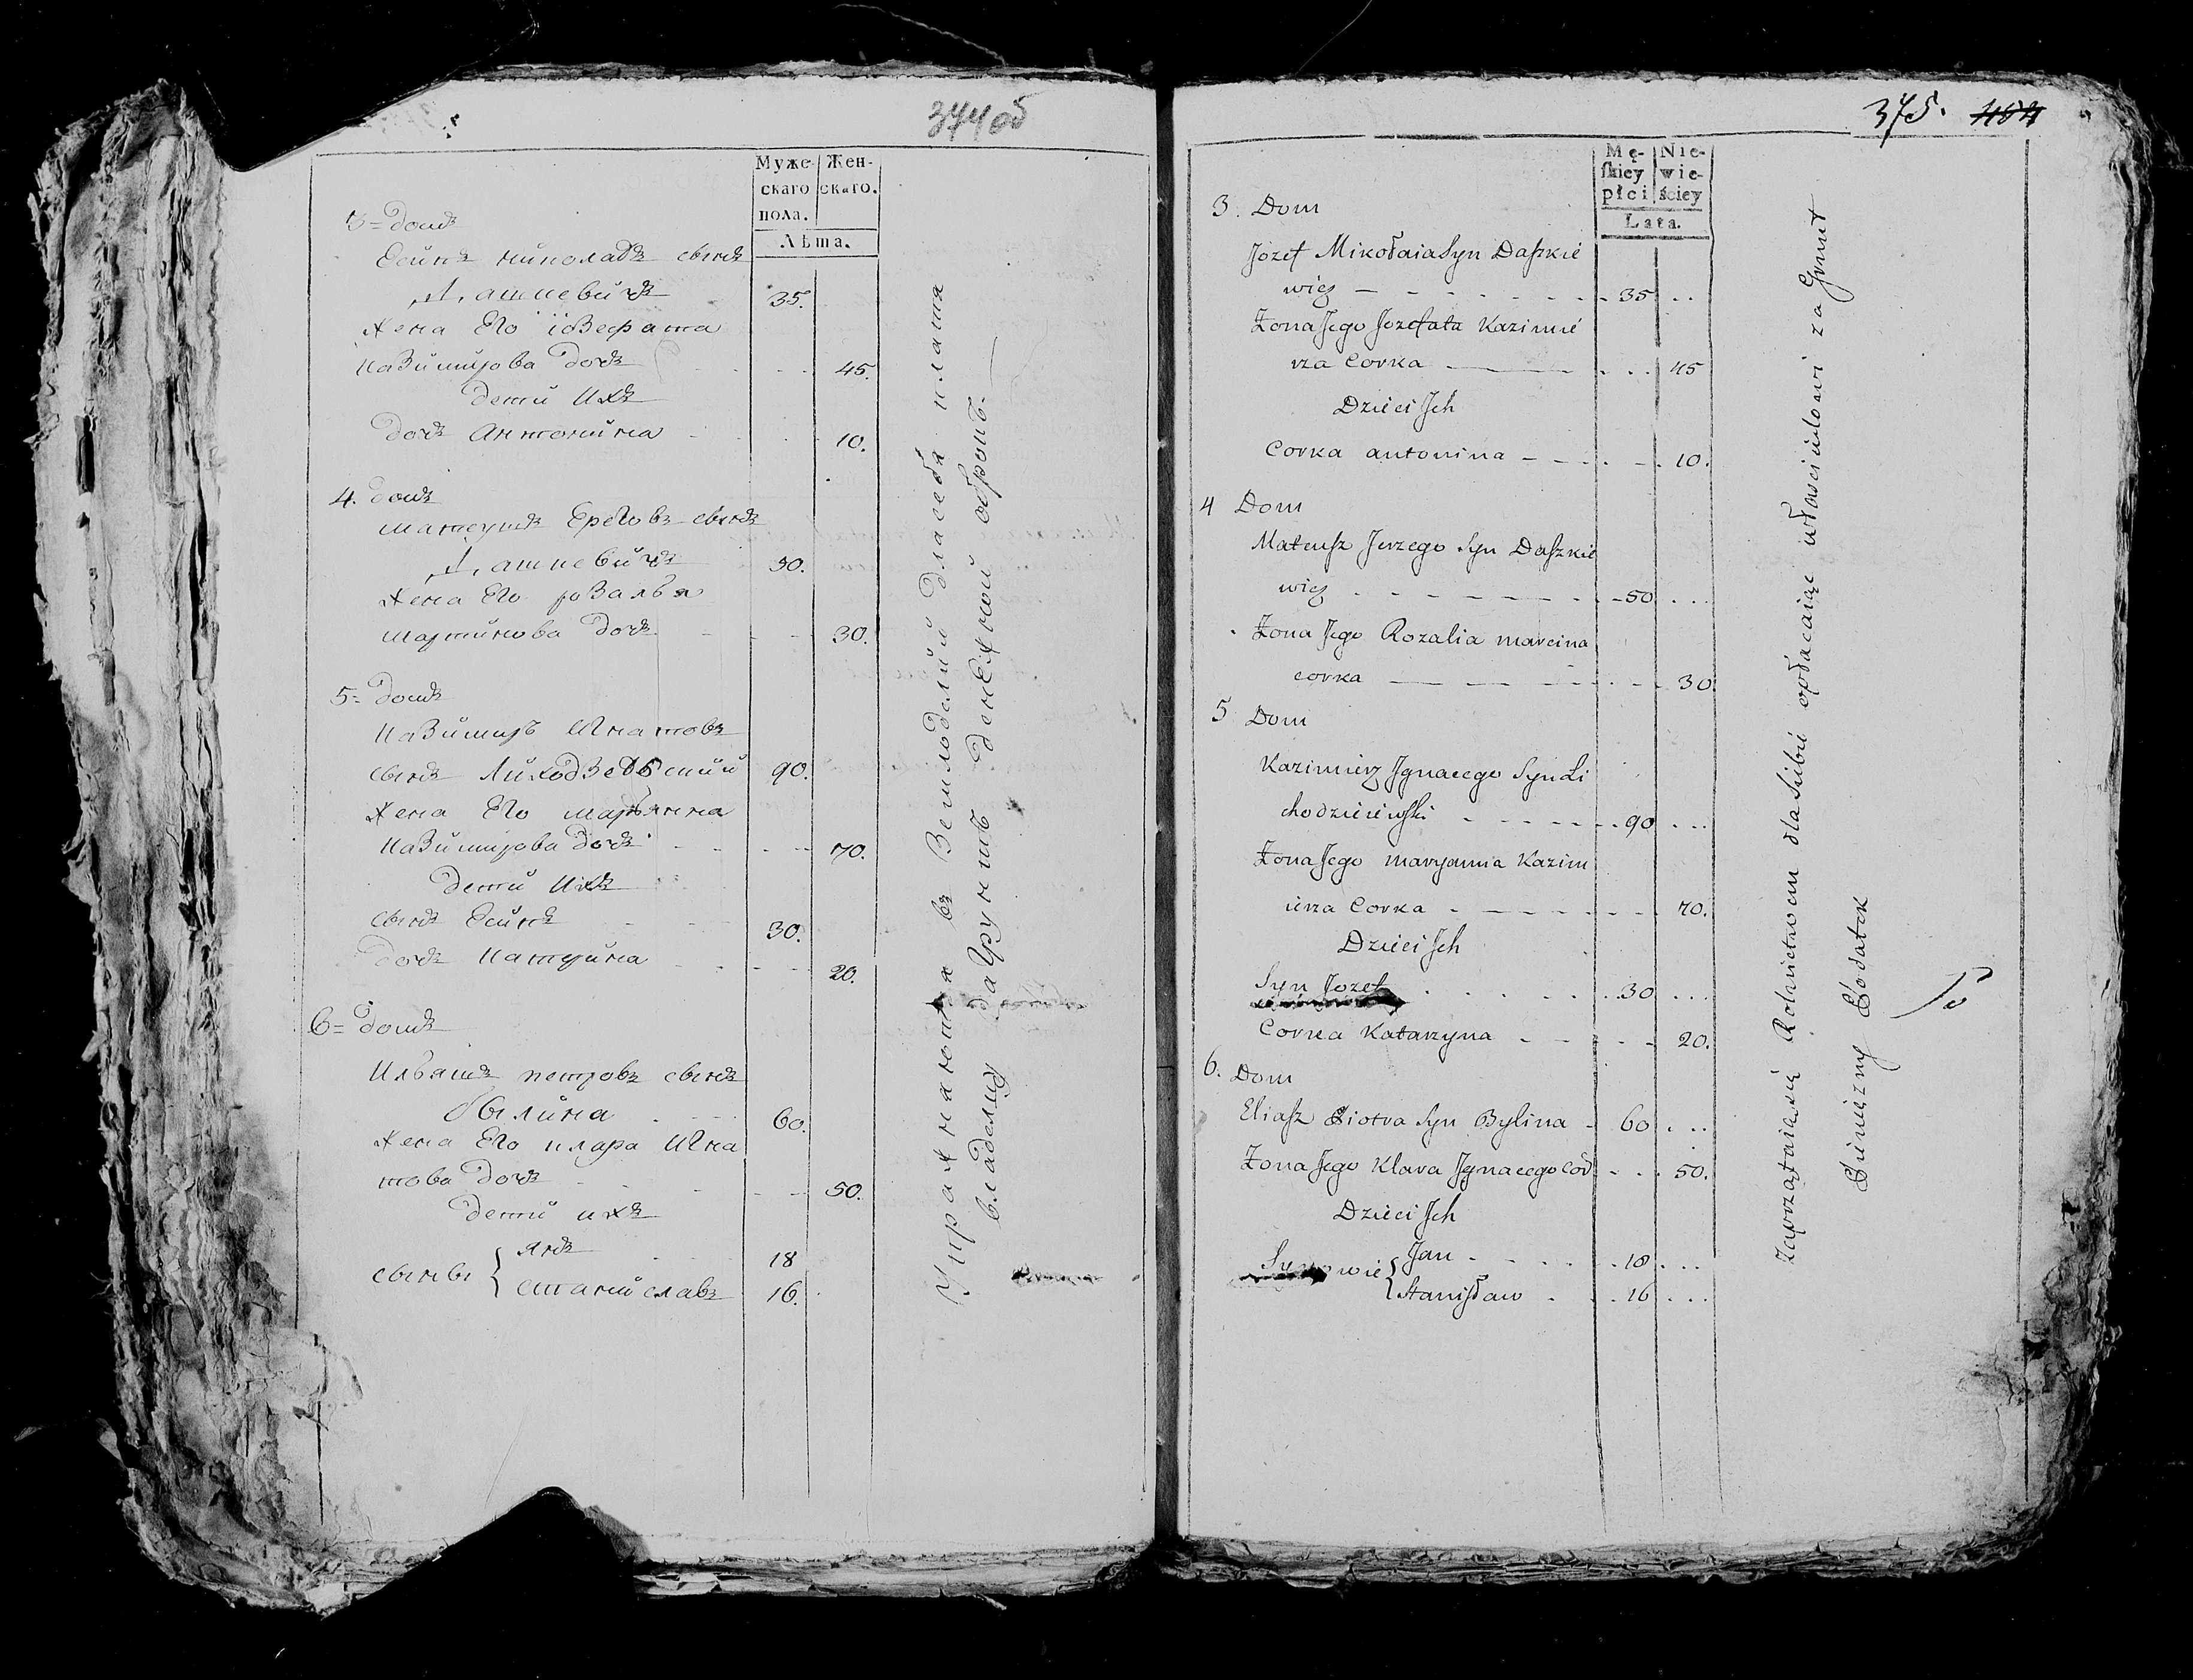 374 об
Муже- Жен-
скаго скаго.
пола.
Лѣта.
3 = домъ
Осипъ николаевъ сынъ
Дашкевичъ 35.
жена его іозефата
казимирова дочь 45.
дети ихъ
дочь антонина 10.
4. домъ
матеушъ Ереговъ сынъ
Дашкевичъ 50.
жена его розалья
мартинова дочь 30.
5 = домъ
казимиръ игнатовъ
сынъ Лиходзеевский 90.
жена его марьянна
казимирова дочь 70.
дети ихъ
сынъ Осипъ 30.
дочь катерина 20.
6 = домъ
Ильяшъ петровъ сынъ
былина 60.
жена его клара игна
това дочь 50.
дети ихъ
сыны { янъ 18
станиславъ 16.
Упражнаются въ Земледелии для себя платя
владелцу за Грунтъ денежной оброкъ.
375.
Mę- Nie-
ſkiey wie-
płci ściey
Lata.
3. Dom
Jozef Mikołaia Syn Daſzkie
wicz 35
Zona Jego Jozefata Kazimie
rza Corka 45
Dzieci Jch
Corka antonina 10.
4 Dom
Mateuſz Jerzego Syn Daſzkie
wicz 50
Zona Jego Rozalia marcina
corka 30
5 Dom
Kazimierz Jgnacego Syn Li
chodzieiewſki 90
Zona Jego maryanna Kazim
ierza Corka 70.
Dzieci Jch
Syn Jozef 30
Corka Katarzyna 20.
6. Dom
Eliaſz Piotra Syn Bylina 60
Zona Jego Klara Jgnacego Cor 50.
Dzieci Jch
Synowie { Jan 18
Staniſław 16
Zaprzątaiąsię Rolnictwem dla Siebie opłacaiąc właścicielowi za Grunt
Pienięzny Podatek